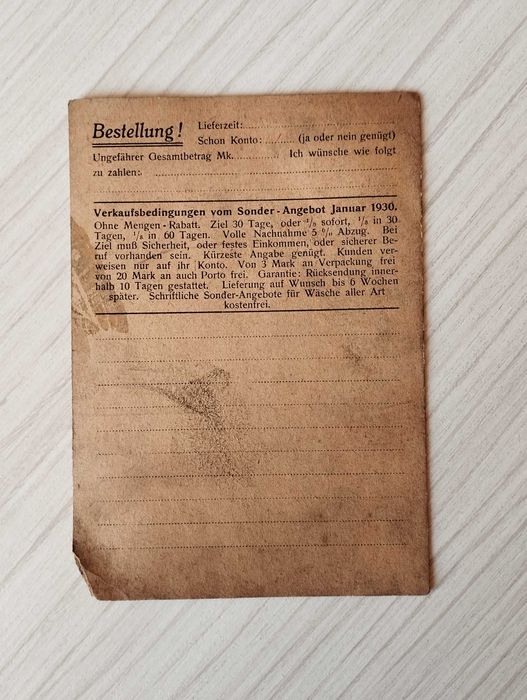 Bestellung!
Lieferzeit:
Schon Konto: (ja oder nein genügt)
Ungefährer Gesamtbetrag Mk. Ich wünsche wie folgt
zu zahlen:
Verkaufsbedingungen vom Sonder-Angebot Januar 1930.
Ohne Mengen-Rabatt. Ziel 30 Tage, oder sofort, in 30
Tagen, in 60 Tagen. Volle Nachnahme 5 % Abzug. Bei
Ziel muß Sicherheit, oder festes Einkommen, oder sicherer Be-
ruf vorhanden sein. Kürzeste Angabe genügt. Kunden ver-
weisen nur auf ihr Konto. Von 3 Mark an Verpackung frei
von 20 Mark an auch Porto frei. Garantie: Rücksendung inner-
halb 10 Tagen gestattet. Lieferung auf Wunsch bis 6 Wochen
später. Schriftliche Sonder-Angebote für Wäsche aller Art
kostenfrei.